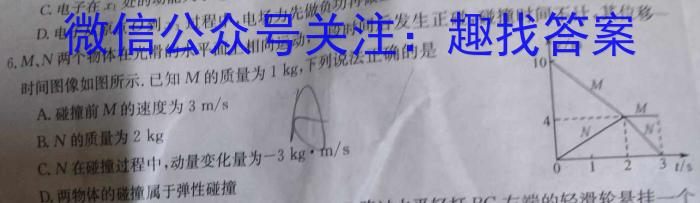 C. 电子在
D. 电 过程中,电场力先做负功
微信公众号关注：趣找答案
6. M、N 两个物体在光滑的水平面上相向运动 发生正碰,碰撞时间不计,其位移
时间图像如图所示.已知 M 的质量为 1 kg,下列说法正确的是
A. 碰撞前 M 的速度为 3 m/s
B. N 的质量为 2 kg
C. N 在碰撞过程中,动量变化量为-3 kg·m/s
D. 两物体的碰撞属于弹性碰撞
A
10
M
4
M
N
N
0 1 2 3 t/s
右端的轻滑轮悬挂一个